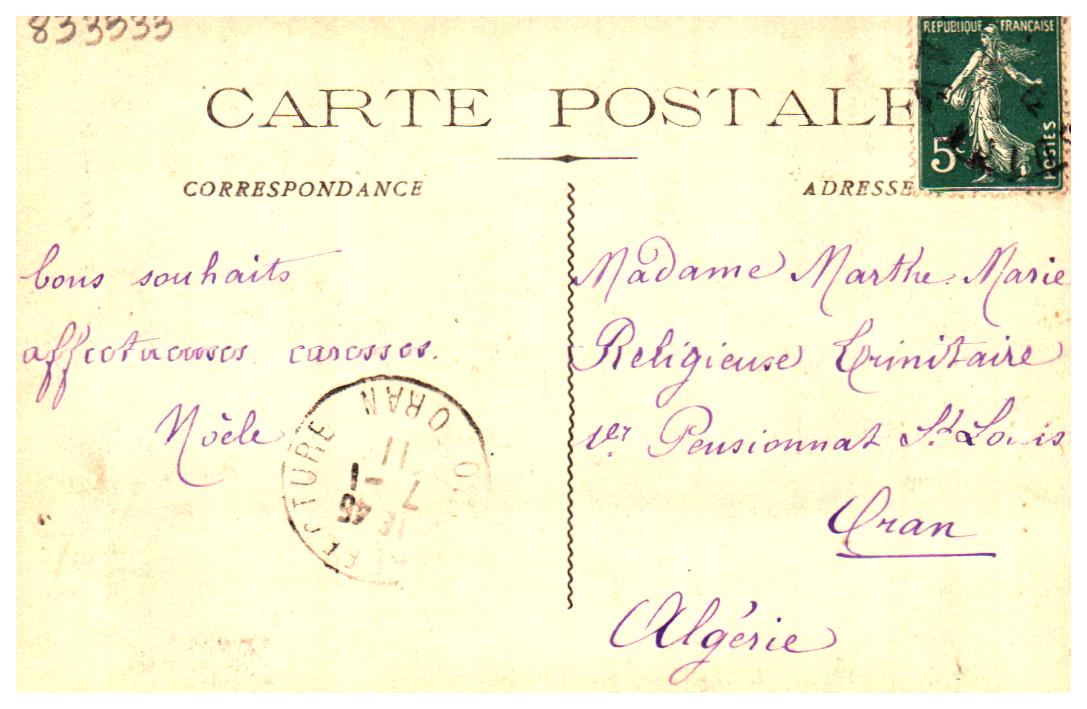 833533
CARTE POSTALE
CORRESPONDANCE
ADRESSE
REPUBLIQUE FRANÇAISE
5c
POSTES
bons souhaits
affectueuses caresses.
Noèle
ORAN
11
7 - 1
45
Madame Marthe-Marie
Religieuse Trinitaire
1er Pensionnat St Louis
Oran
Algérie